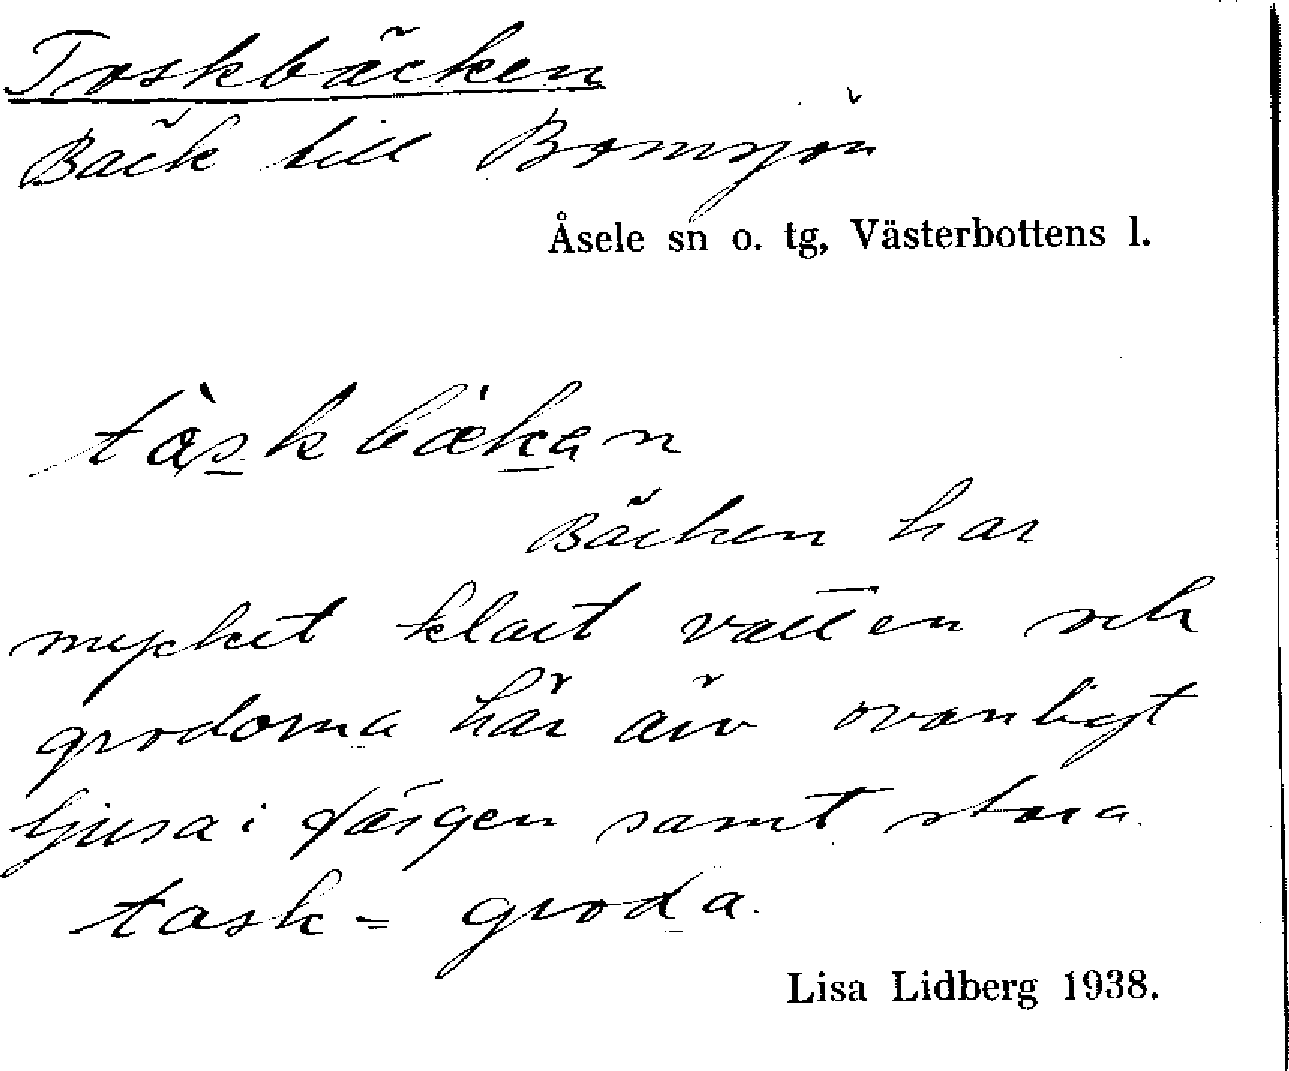 Toskbäcken
Bäck till Bomsjön
Åsele sn o. tg, Västerbottens l.
tàskbækan
Bäcken har
mycket klart vatten och
grodorna här äro ovanligt
ljusa i färgen samt stora
task = groda.
Lisa Lidberg 1938.